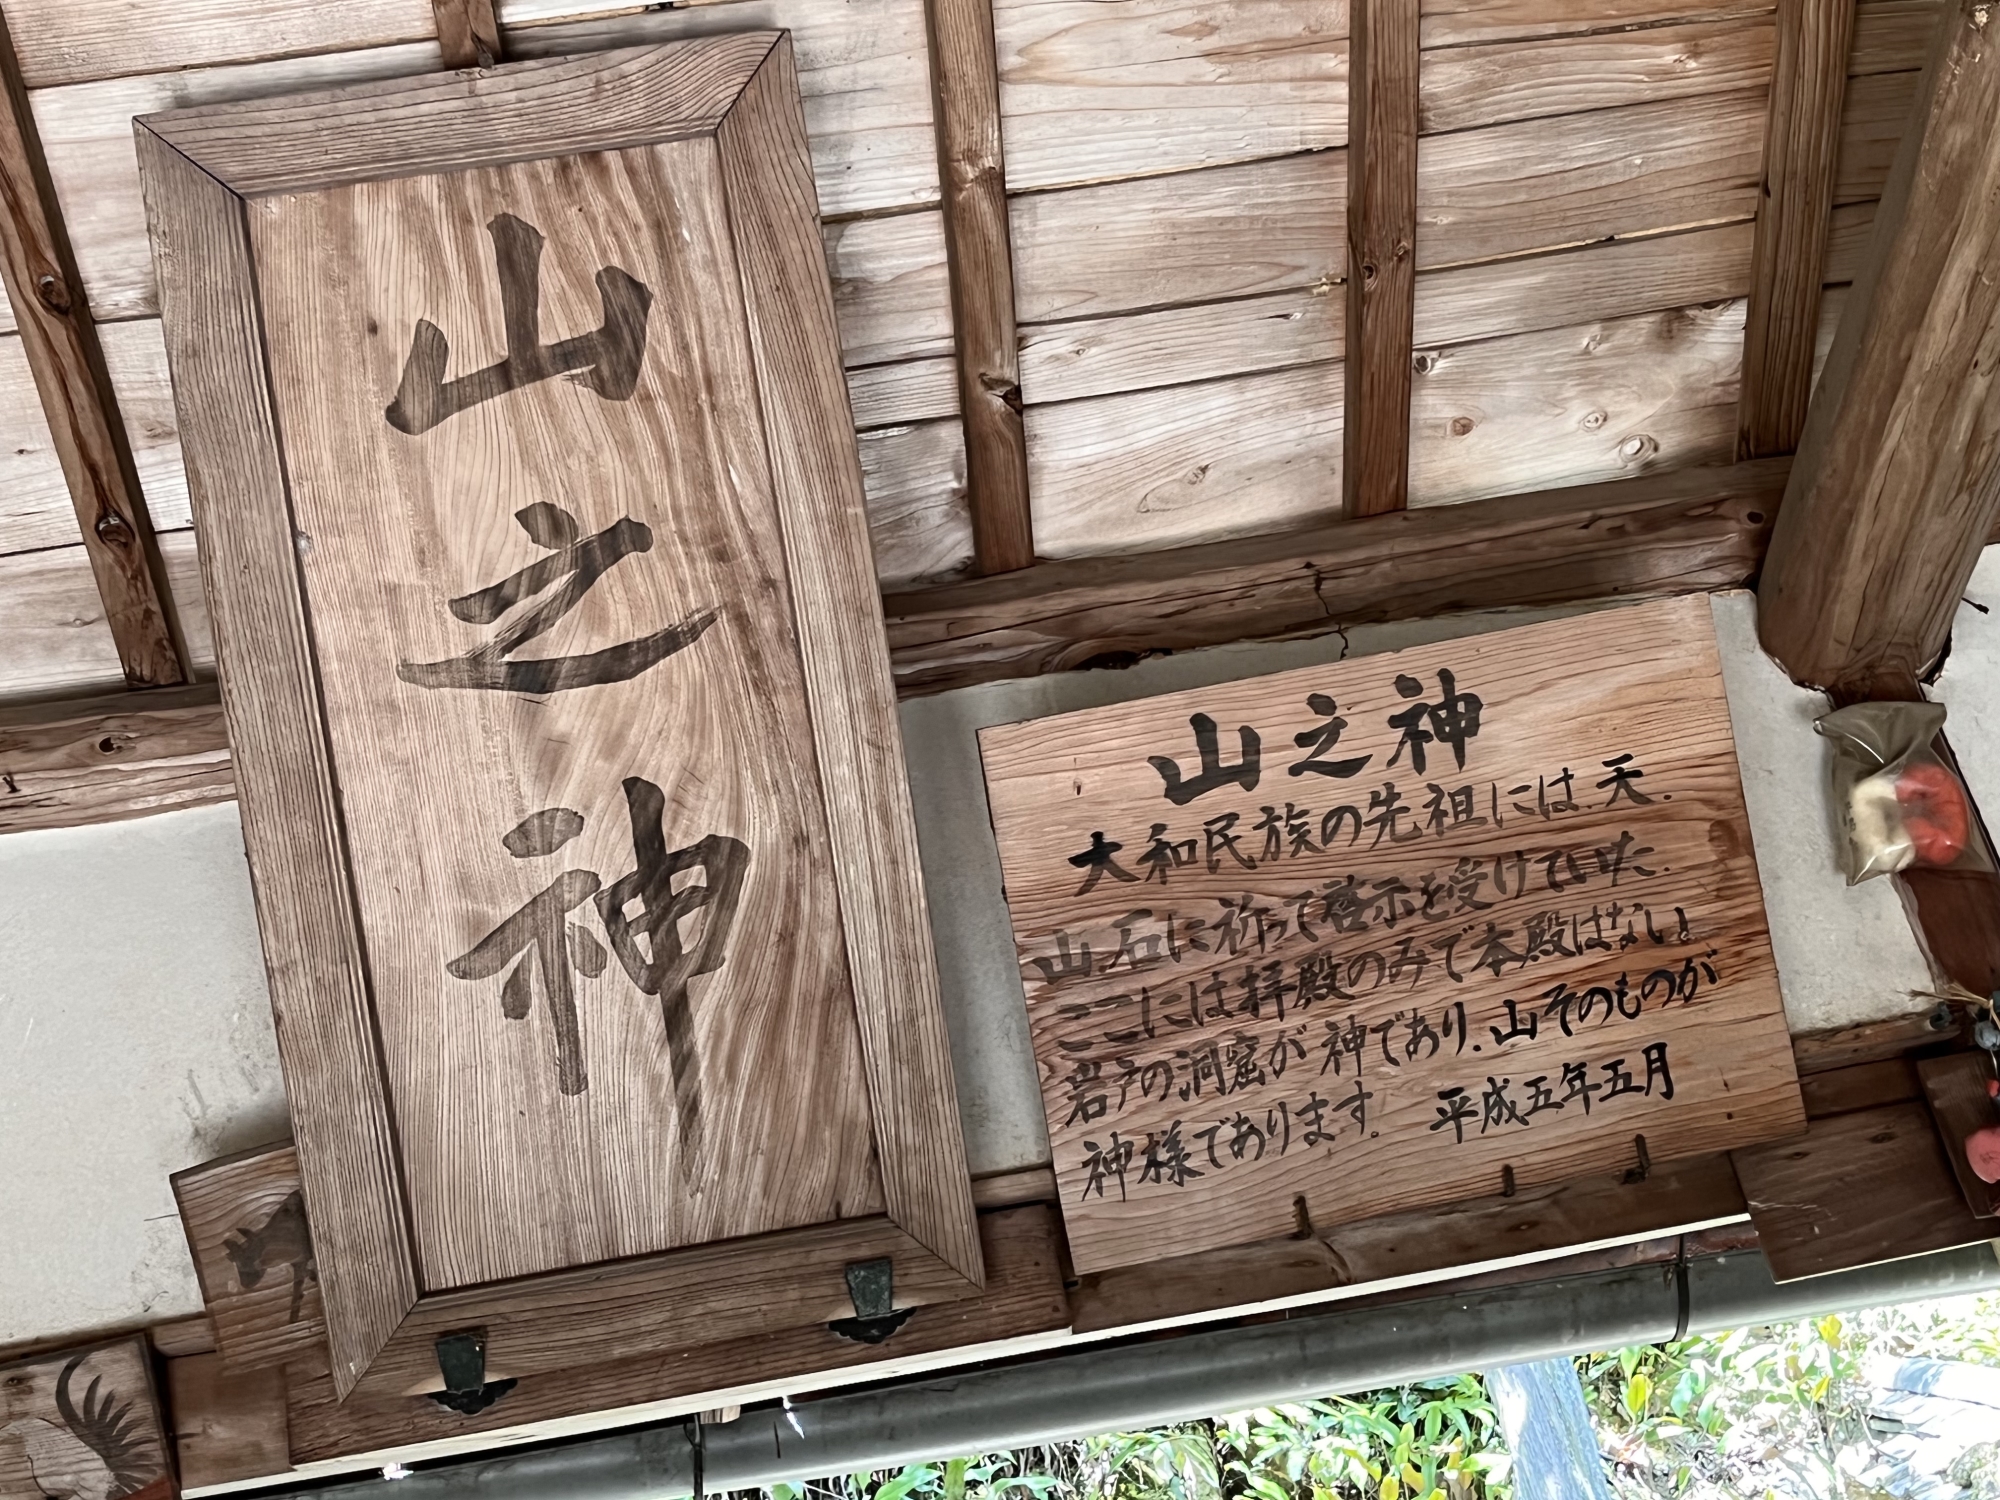 山之神
山之神
大和民族の先祖には、天、
山、石に祈って啓示を受けていた。
ここには拝殿のみで本殿はない。
岩戸の洞窟が神であり、山そのものが
神様であります。 平成五年五月